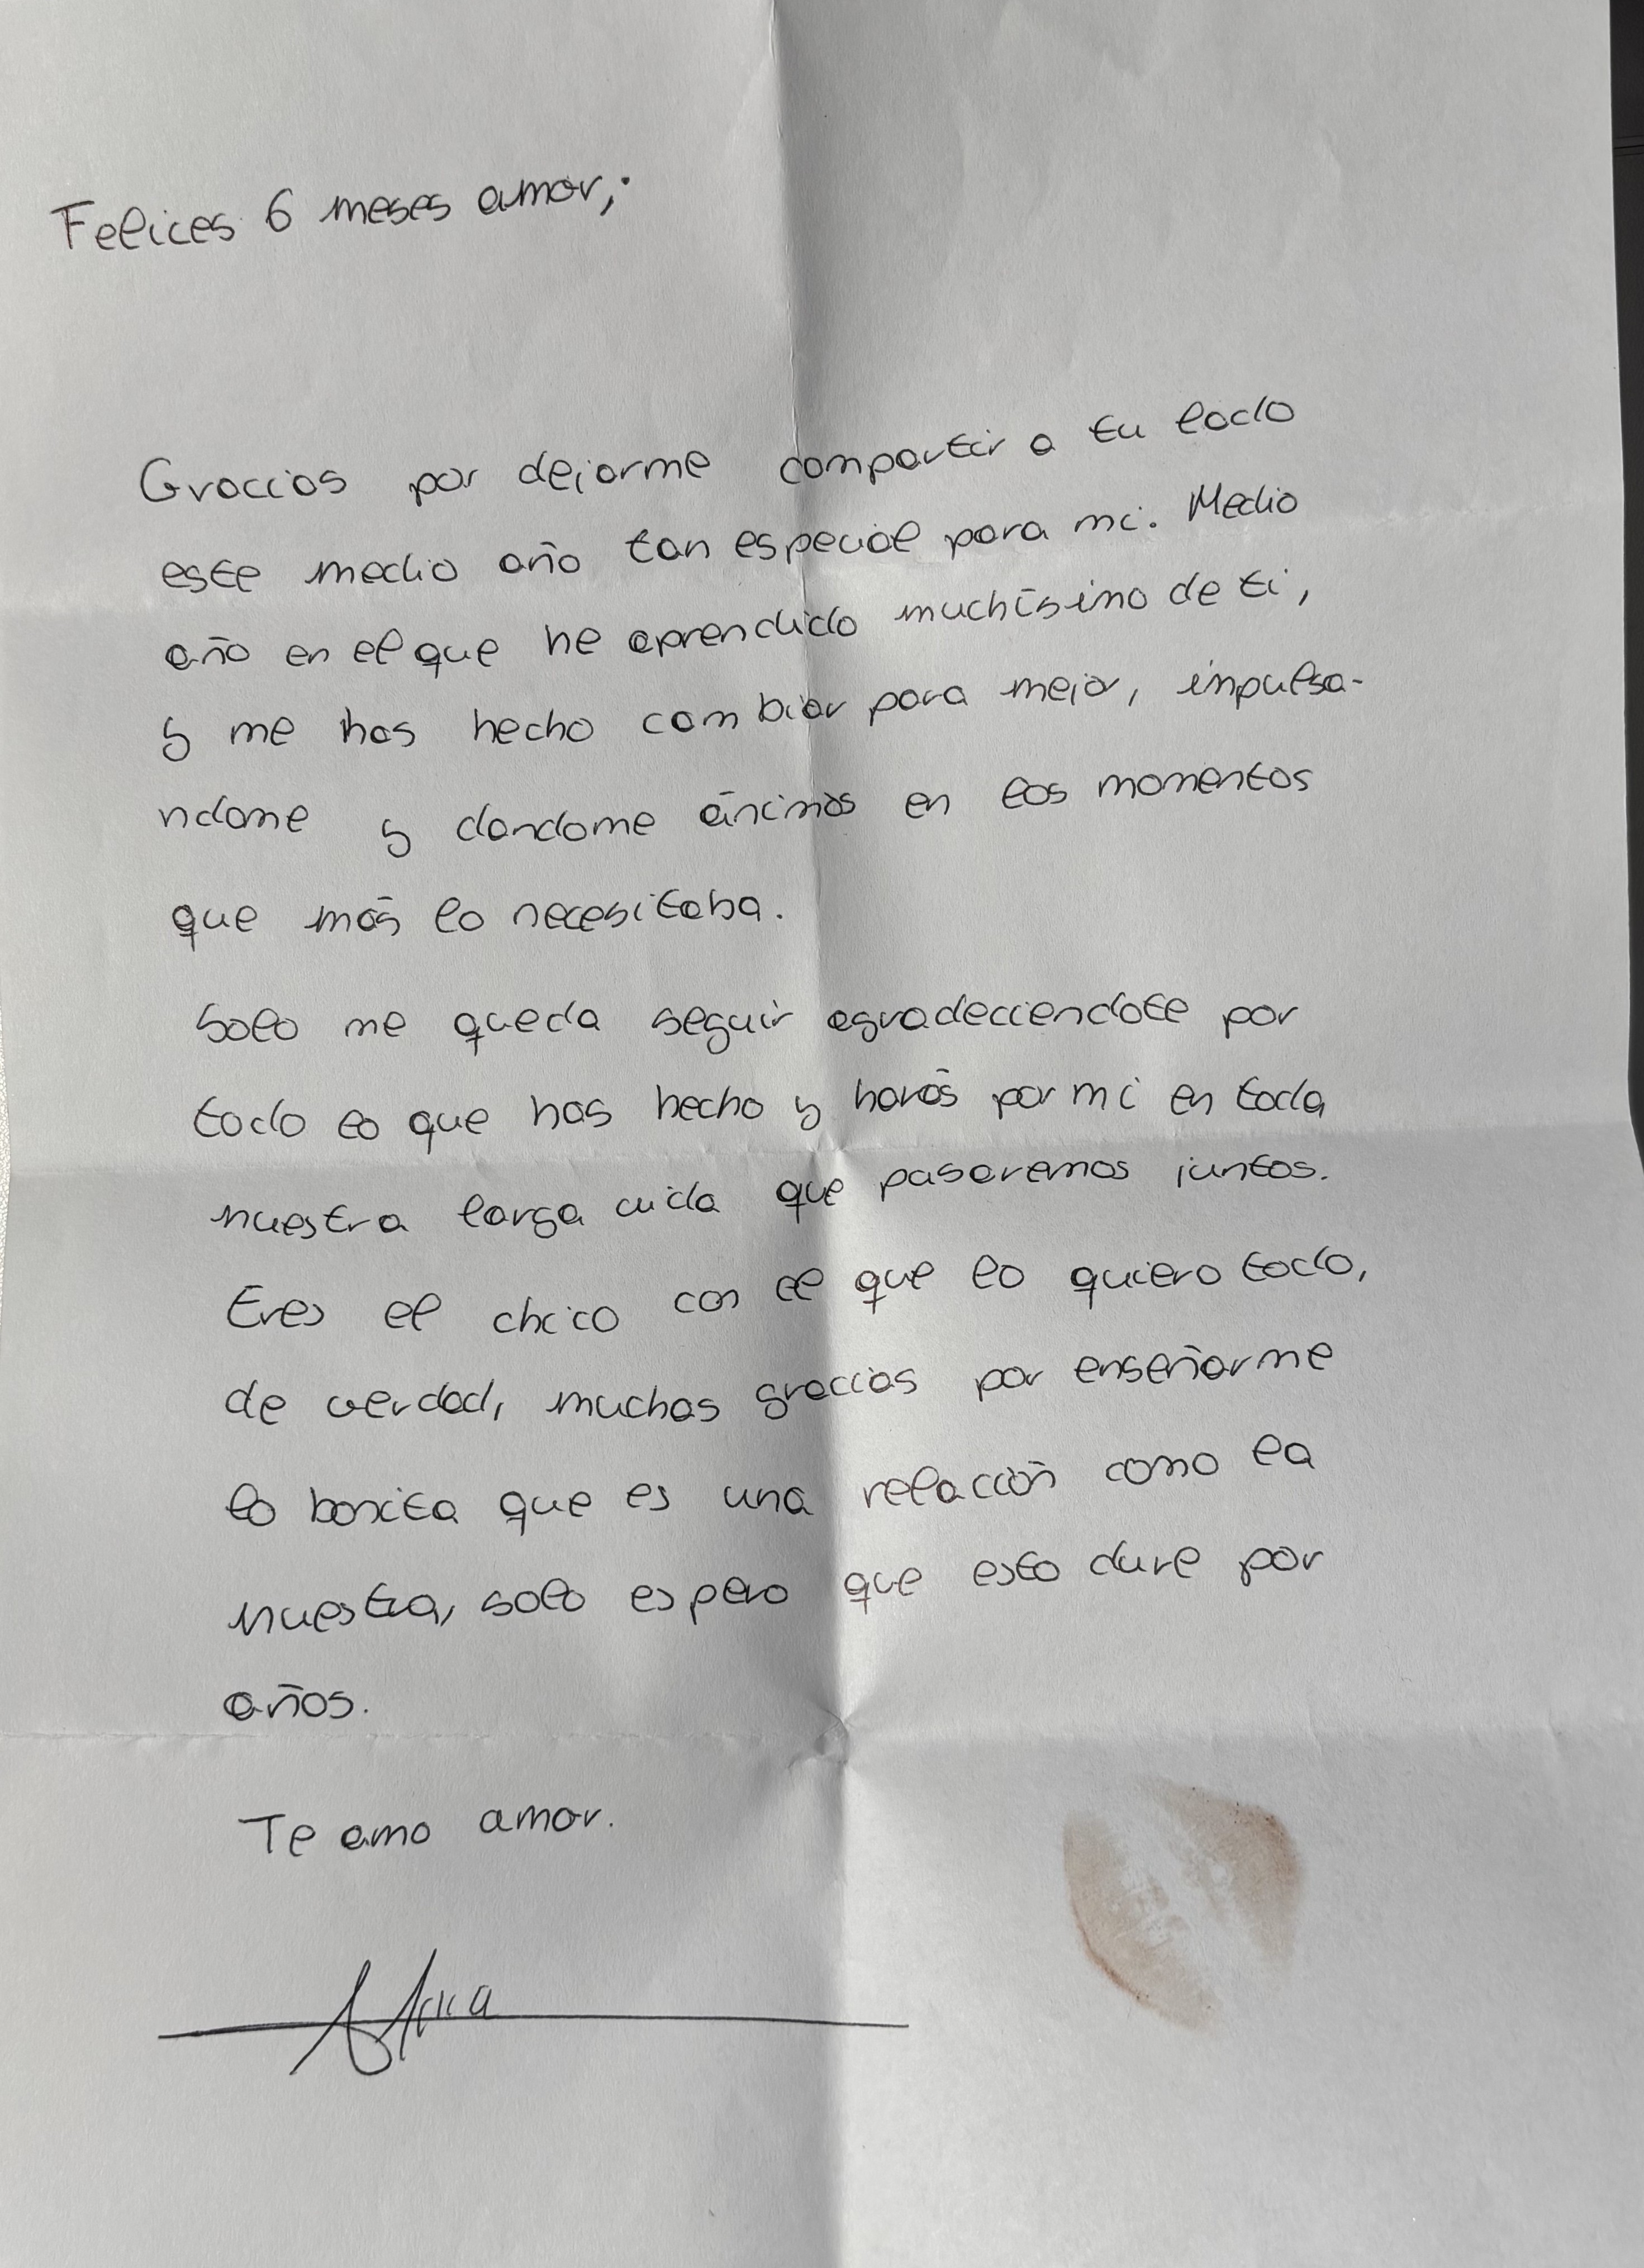 Felices 6 meses amor;
Gracias por dejarme compartir a tu lado
este medio año tan especial para mi. Medio
año en el que he aprendido muchísimo de ti,
y me has hecho cambiar para mejor, impulsa-
ndome y dandome ánimos en los momentos
que más lo necesitaba.
Solo me queda seguir agradeciendote por
todo lo que has hecho y harás por mi en toda
nuestra larga vida que pasaremos juntos.
Eres el chico con el que lo quiero todo,
de verdad, muchas gracias por enseñarme
lo bonita que es una relación como la
nuestra, solo espero que esto dure por
años.
Te amo amor.